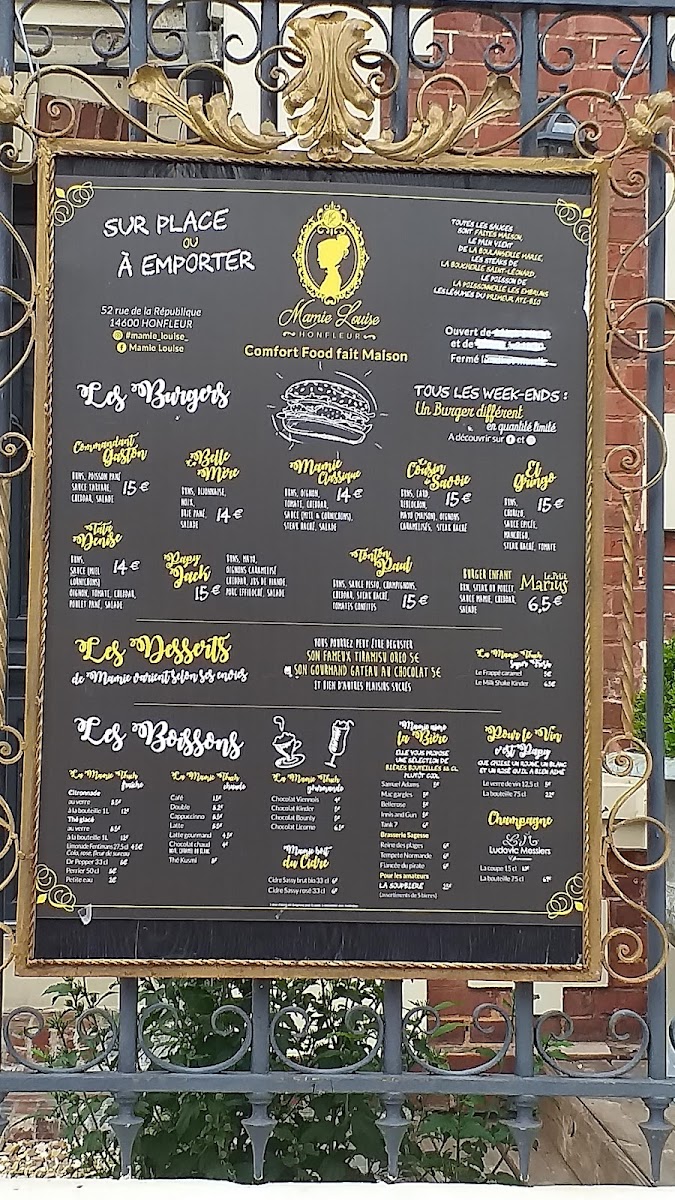 SUR PLACE
OU
À EMPORTER
52 rue de la République
14600 HONFLEUR
#mamie_louise_
Mamie Louise
Mamie Louise
HONFLEUR
Comfort Food fait Maison
TOUTES LES SAUCES
SONT FAITES MAISON,
LE PAIN VIENT
DE LA BOULANGERIE MARIE,
LES STEAKS DE
LA BOUCHERIE SAINT-LÉONARD,
LE POISSON DE
LA POISSONNERIE LES EMBRUNS
LES LÉGUMES DU PRIMEUR ATL-BIO
Ouvert de
et de
Fermé
Les Burgers
TOUS LES WEEK-ENDS :
Un Burger différent
en quantité limité
A découvrir sur et
Commandant
Gaston
BUNS, POISSON PANÉ
SAUCE TARTARE,
CHEDDAR, SALADE
15€
La Belle
Mère
BUNS, DIJONNAISE,
NOIX,
BRIE PANÉ,
SALADE
14€
Mamie
Classique
BUNS, OIGNON,
TOMATE, CHEDDAR,
SAUCE (MIEL & CORNICHONS),
STEAK HACHÉ, SALADE
14€
Cousin
de Savoie
BUNS, LARD,
REBLOCHON,
MAYO (MAISON), OIGNONS
CARAMELISÉS, STEAK HACHÉ
15€
El
Gringo
BUNS,
CHORIZO,
SAUCE ÉPICÉE,
MANCHEGO,
STEAK HACHÉ, TOMATE
15€
Tata
Denise
BUNS,
SAUCE (MIEL
CORNICHONS)
OIGNON, TOMATE, CHEDDAR,
POULET PANÉ, SALADE
14€
Papy
Jack
15€
BUNS, MAYO,
OIGNONS CARAMELISÉ
CHEDDAR, JUS DE VIANDE,
PORC EFFILOCHÉ, SALADE
Tonton
Paul
BUNS, SAUCE PESTO, CHAMPIGNONS,
CHEDDAR, STEAK HACHÉ,
TOMATES CONFITES
15€
BURGER ENFANT
BUN, STEAK OU POULET,
SAUCE MAMIE, CHEDDAR,
SALADE
Le Petit
Marius
6,5€
Les Desserts
de Mamie varient selon ses envies
VOUS POURREZ PEUT ÊTRE DEGUSTER
SON FAMEUX TIRAMISU OREO 5€
OU SON GOURMAND GATEAU AU CHOCOLAT 5€
ET BIEN D'AUTRES PLAISIRS SUCRÉS
La Mamie Touch
Super Fresh
Le Frappé caramel 5€
Le Milk Shake Kinder 6.5€
Les Boissons
La Mamie Touch
fraîche
Citronnade
au verre 3.5€
à la bouteille 1L 12€
Thé glacé
au verre 3.5€
à la bouteille 1L 12€
Limonade Fentimans 27,5cl 4.5€
Cola, rose, fleur de sureau
Dr Pepper 33 cl
Perrier 50 cl
Petite eau 2€
La Mamie Touch
chaude
Café 1.5€
Double
Cappuccino
Latte
Latte gourmand 4.5€
Chocolat chaud 4€
NOIR, CARAMEL OU BLANC
Thé Kusmi
La Mamie Touch
gourmande
Chocolat Viennois
Chocolat Kinder
Chocolat Bounty
Chocolat Licorne
Mamie boit
du Cidre
Cidre Sassy brut bio 33 cl 6€
Cidre Sassy rosé 33 cl 6€
Mamie aime
la Bière
ELLE VOUS PROPOSE
UNE SÉLECTION DE
BIÈRES BOUTEILLES 33 CL
PLUTÔT COOL
Samuel Adams 5€
Mac gargles 5€
Bellerose 5€
Innis and Gun 5€
Tank 7 6€
Brasserie Sagesse
Reine des plages 6€
Tempete Normande 6€
Fiancée du pirate 6€
Pour les amateurs
LA SOUPBIERE 25€
(assortiments de 5 bières)
Pour le Vin
c'est Papy
QUI CHOISI UN ROUGE, UN BLANC
ET UN ROSÉ QU'IL A BIEN AIMÉ
Le verre de vin 12,5 cl 5€
La bouteille 75 cl 22€
Champagne
Ludovic Massiers
La coupe 15 cl 12€
La bouteille 75 cl